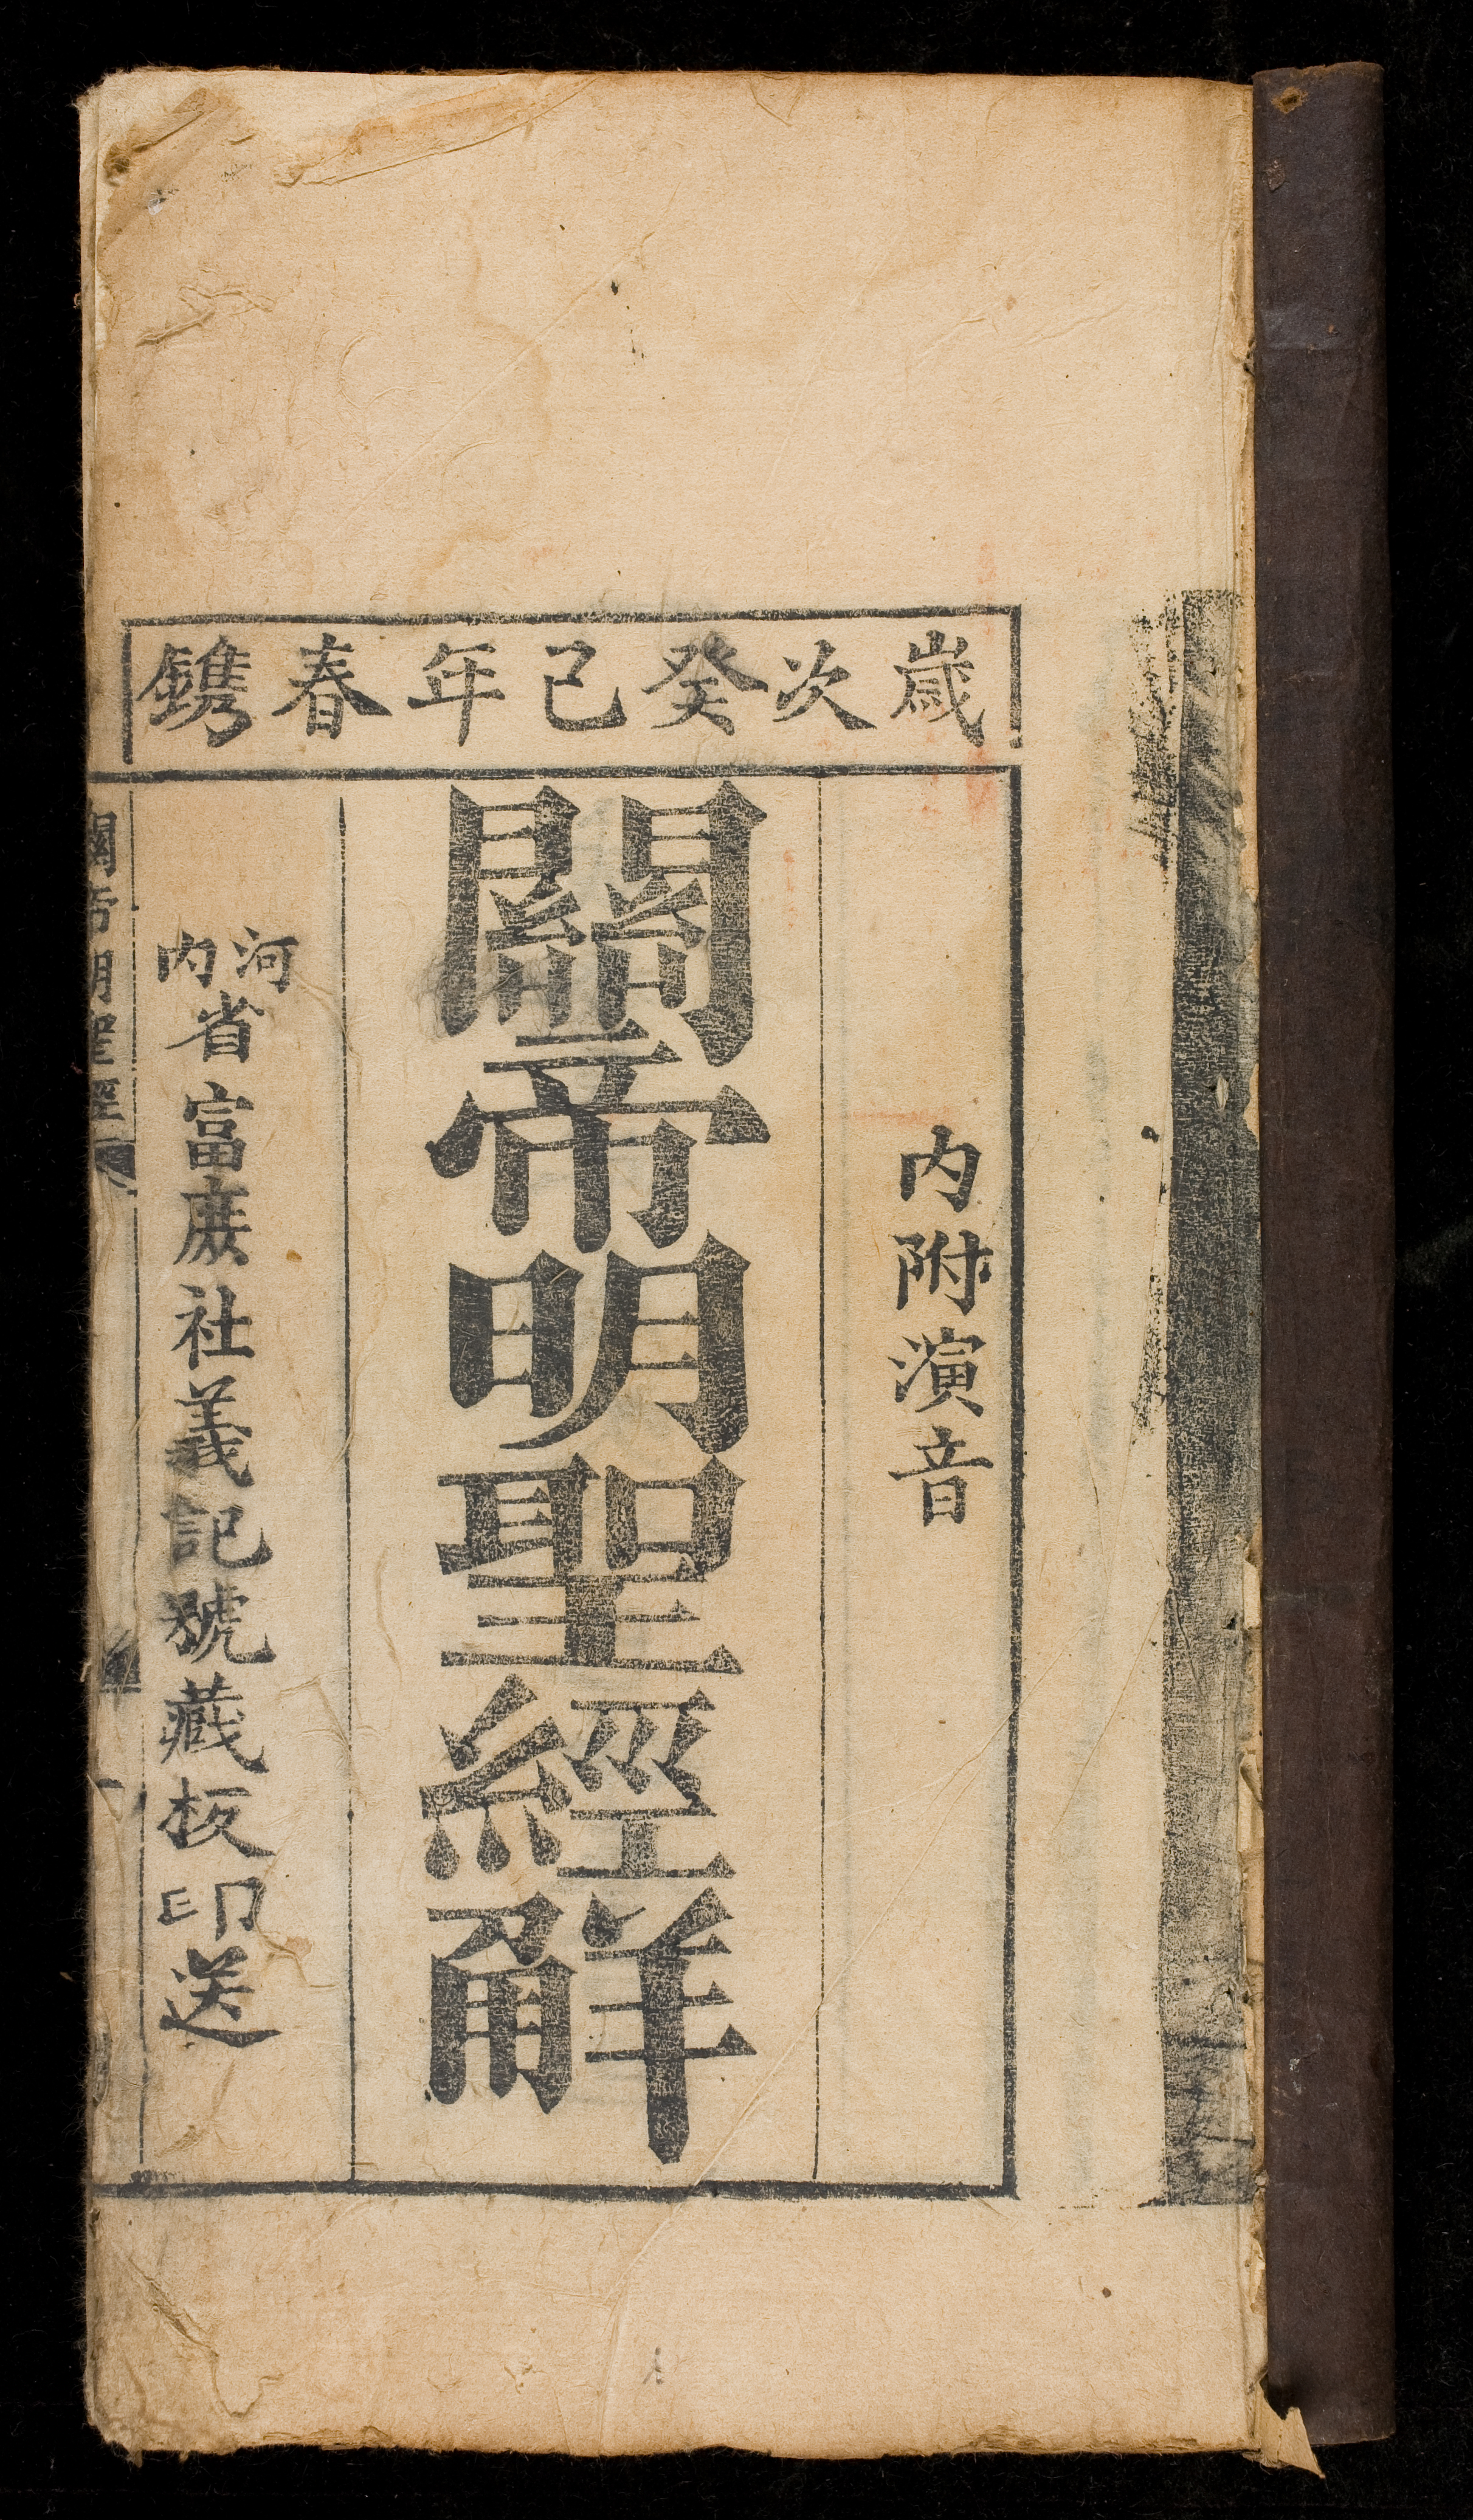 歲次癸巳年春鐫
内附演音
關帝明聖經解
河内省富庶社義記號藏板印送
關帝明聖經